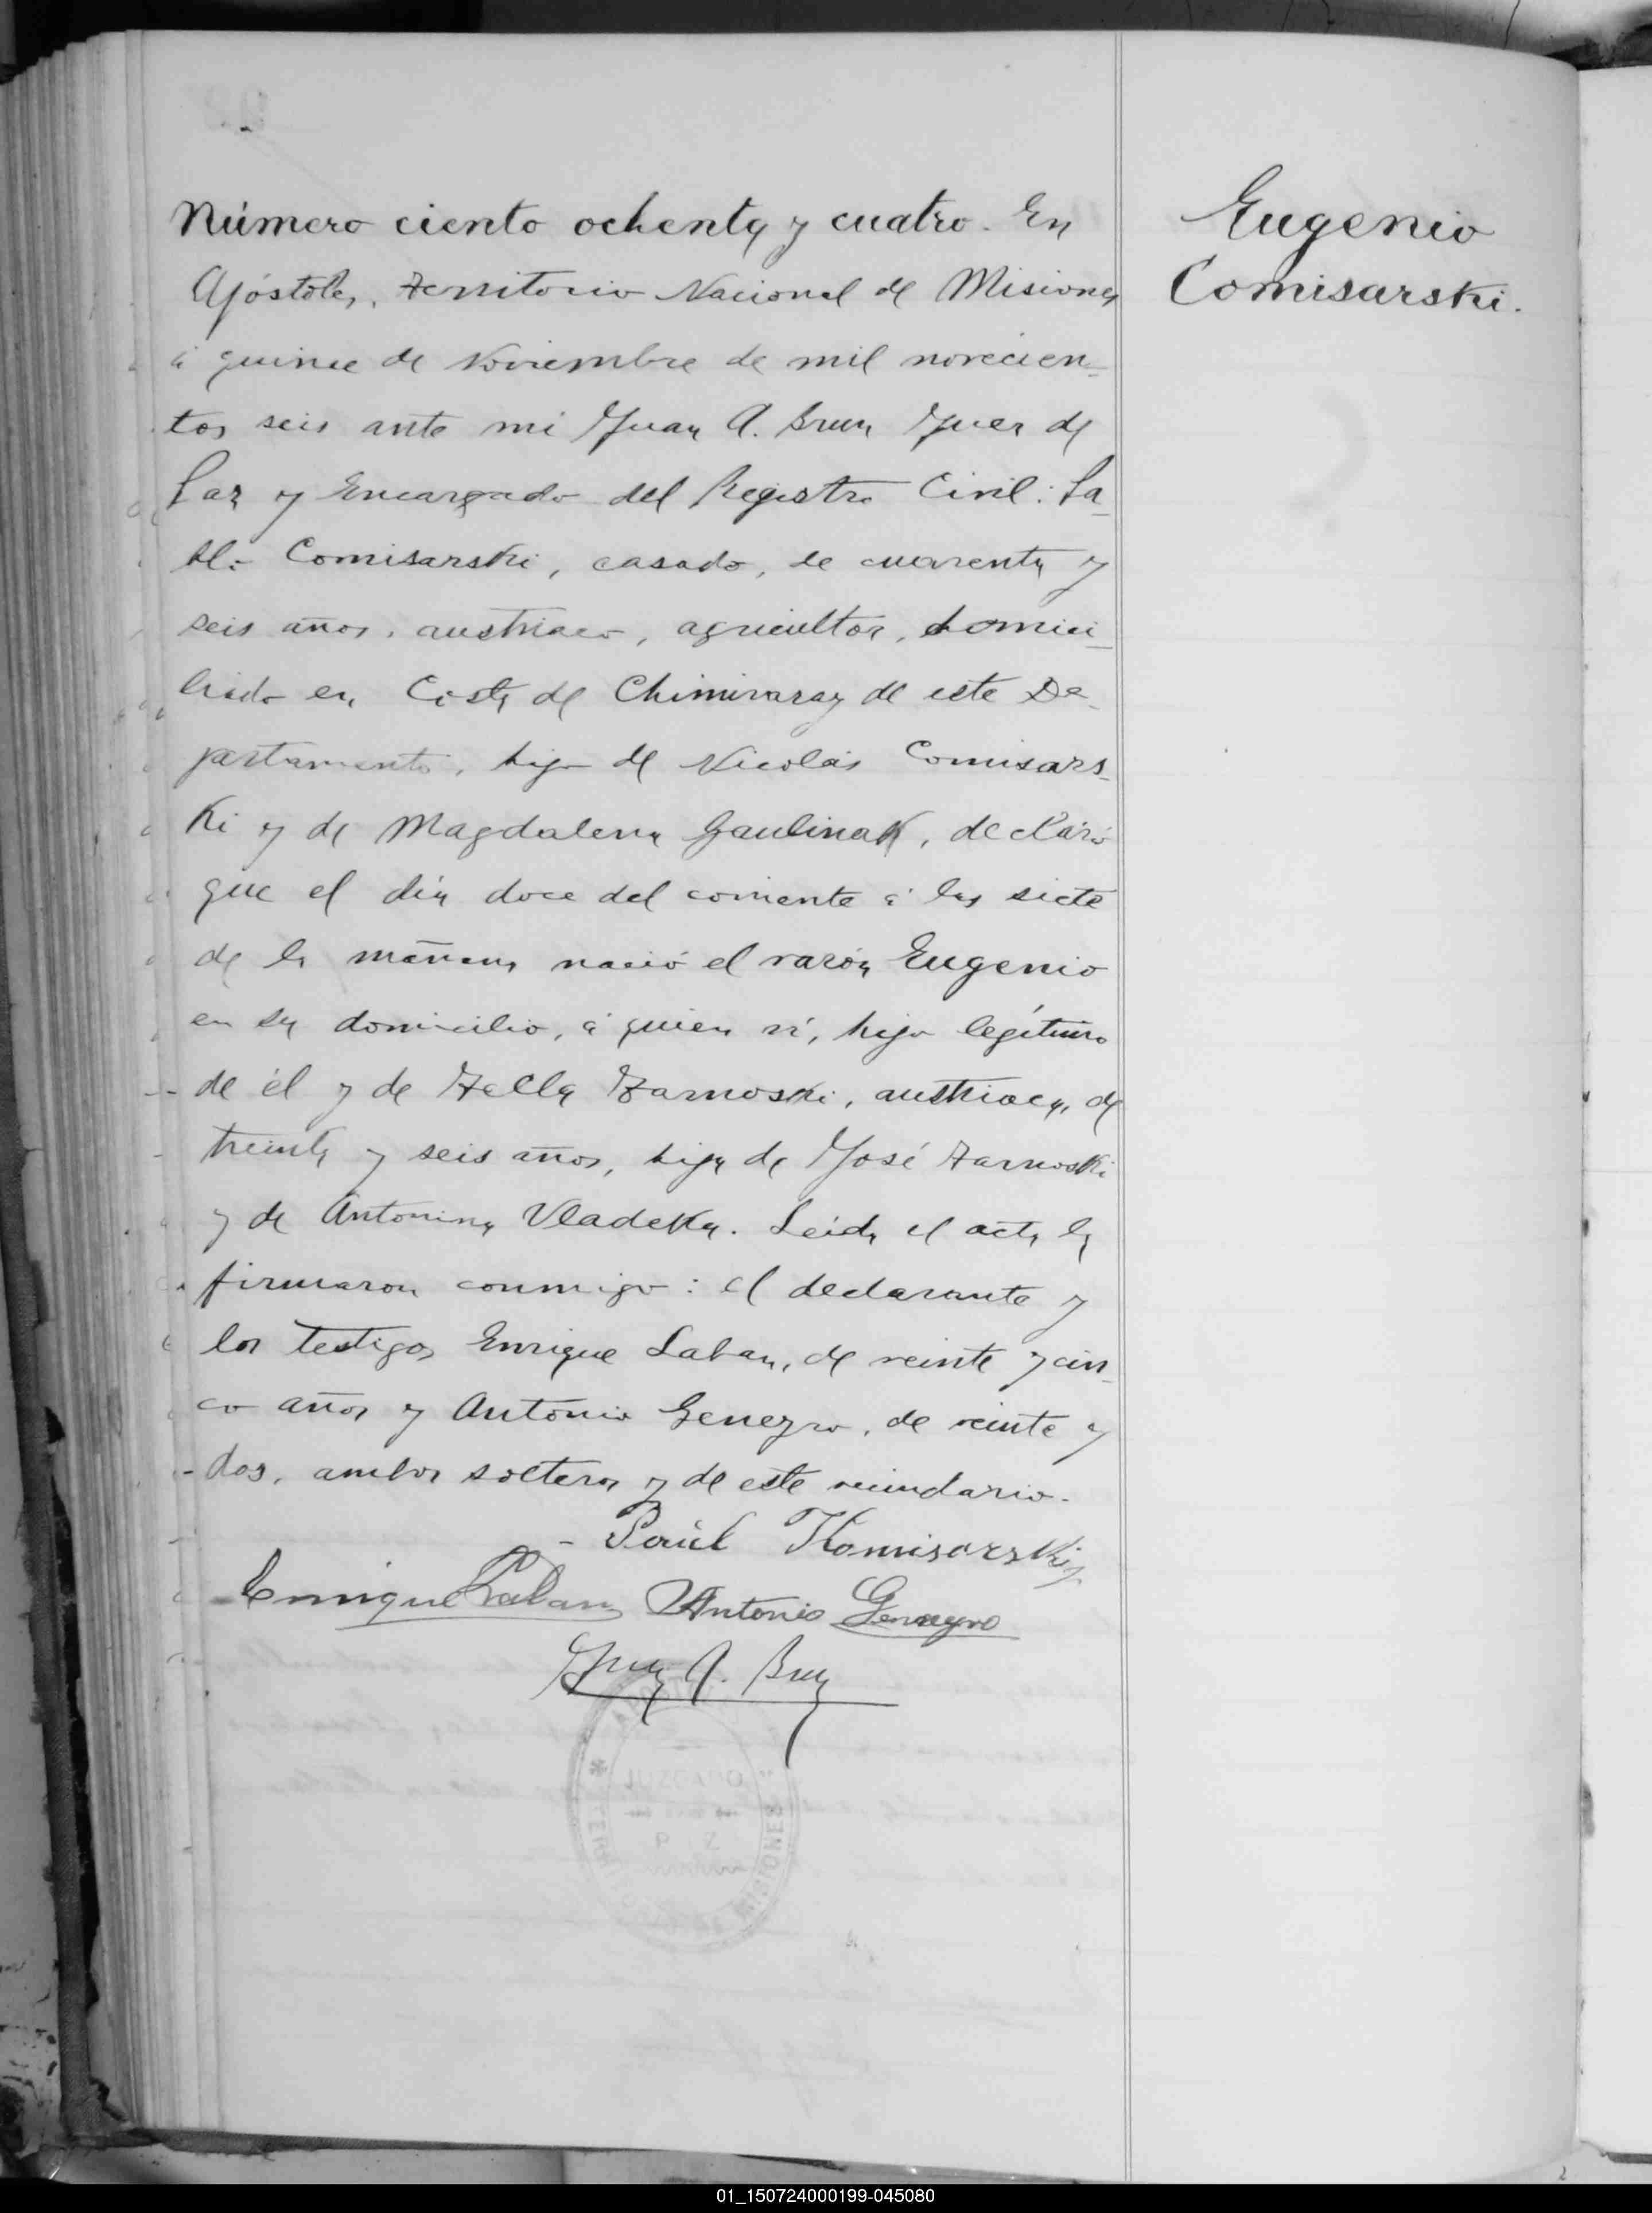 Número ciento ochenta y cuatro. En
Apóstoles, Territorio Nacional de Misiones
á quince de Noviembre de mil novecien-
tos seis ante mi Juan A. Brun Juez de
Paz y Encargado del Registro Civil: Pa-
blo Comisarski, casado, de cuarenta y
seis años, austriaco, agricultor, domici-
liado en Costa de Chimiraray de este De-
partamento, hijo de Nicolás Comisars-
ki y de Magdalena Gaulinak, declaró
que el día doce del corriente á las siete
de la mañana nació el varón Eugenio
en su domicilio, á quien ví, hijo legítimo
de él y de Tella Zarnoski, austriaca, de
treinta y seis años, hija de José Zarnoski
y de Antonina Vladeka. Leida el acta la
firmaron conmigo: el declarante y
los testigos Enrique Laban, de veinte y cin-
co años y Antonio Genezro, de veinte y
dos, ambos solteros y de este vecindario.
Paúl Komisarski
Enrique Laban Antonio
Juan A. Brun
JUZGADO
P Z
MISIONES
Eugenio
Comisarski.
01_150724000199-045080